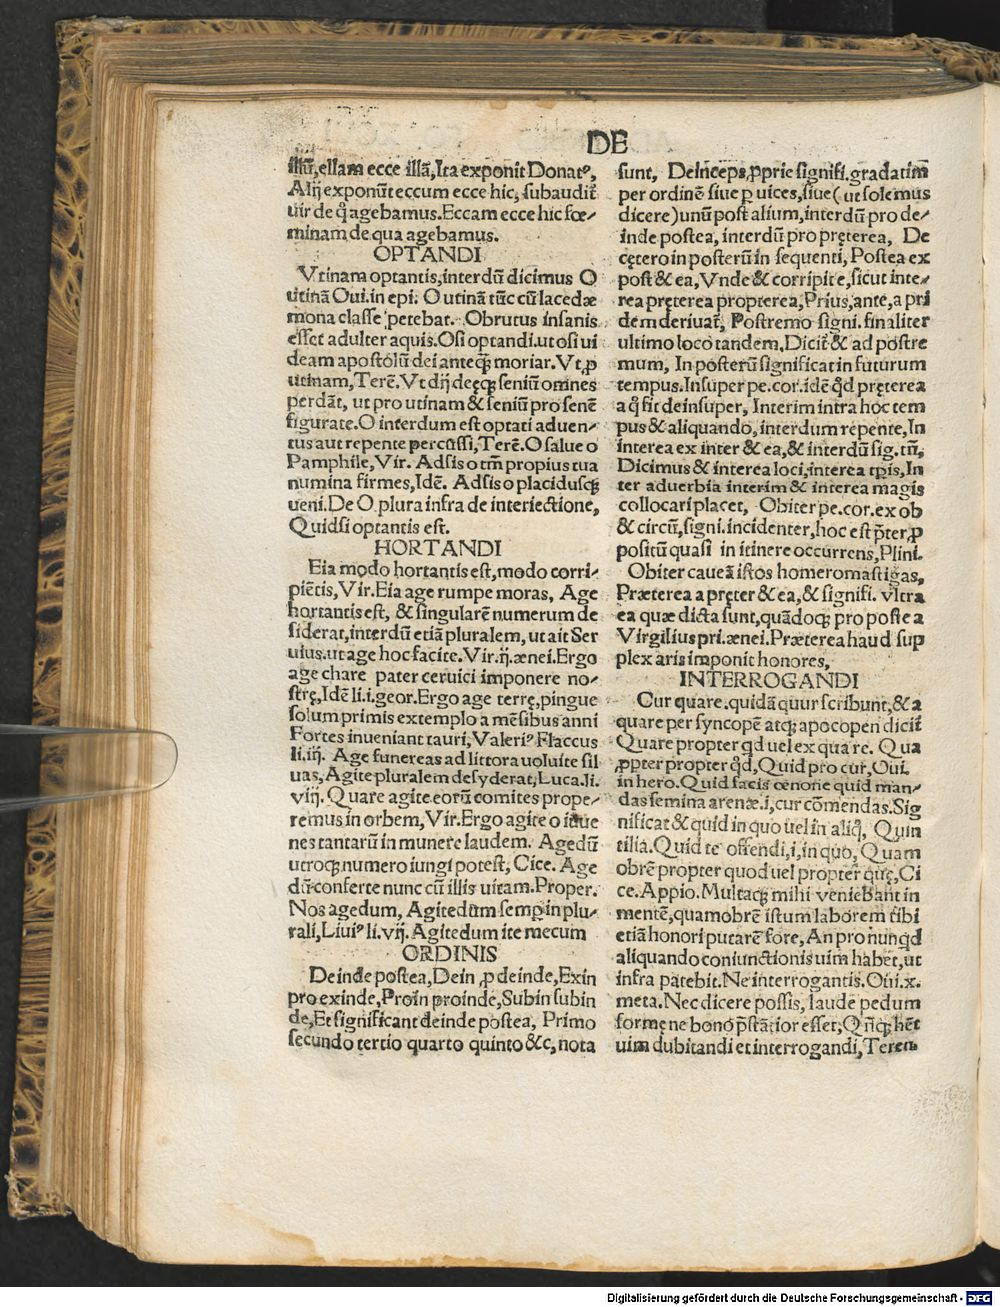 DE
illũ, ellam ecce illã, Ita exponit Donatꝰ,
Alij exponũt eccum ecce hic, subaudit̃
uir de q̃ agebamus. Eccam ecce hic fœ-
minam de qua agebamus.
OPTANDI
Vtinam optantis, interdũ dicimus O
utinã Oui. in epi. O utinã tũc cũ lacedæ
mona classe petebat. Obrutus insanis
esset adulter aquis. Osi optandi. ut osi ui
deam apostolũ dei anteq̃ꝫ moriar. Vt, ꝓ
utinam, Terẽ. Vt dij deęqꝫ seniũ omnes
perdãt, ut pro utinam & seniũ pro senẽ
figurate. O interdum est optati aduen-
tus aut repente percussi, Terẽ. O salue o
Pamphile, Vir. Adsis o tm̃ propius tua
numina firmes, Idẽ. Adsis o placidusqꝫ
ueni. De O plura infra de interiectione,
Quidsi optantis est.
HORTANDI
Eia modo hortantis est, modo corri-
piẽtis, Vir. Eia age rumpe moras, Age
hortantis est, & singularẽ numerum de
siderat, interdũ etiã pluralem, ut ait Ser
uius. ut age hoc facite. Vir. ij. ænei. Ergo
age chare pater ceruici imponere no-
strę, Idẽ li. i. geor. Ergo age terrę, pingue
solum primis extemplo a mẽsibus anni
Fortes inueniant tauri, Valeriꝰ Flaccus
li. iij. Age funereas ad littora uoluite sil
uas, Agite pluralem desyderat, Luca. li.
viij. Quare agite eorũ comites prope-
remus in orbem, Vir. Ergo agite o iuue
nes tantarũ in munere laudem. Agedũ
utroqꝫ numero iungi potest, Cice. Age
dũ conferte nunc cũ illis uitam. Proper.
Nos agedum, Agitedum semꝑ in plu-
rali, Liuiꝰ li. vij. Agitedum ite mecum
ORDINIS
Deinde postea, Dein, ꝓ deinde, Exin
pro exinde, Proin proinde, Subin subin
de, Et significant deinde postea, Primo
secundo tertio quarto quinto &c, nota
sunt, Deinceps, ꝓprie signifi. gradatim̃
per ordinẽ siue ꝑ uices, siue (ut solemus
dicere) unũ post alium, interdũ pro de-
inde postea, interdũ pro pręterea, De
cętero in posterũ in sequenti, Postea ex
post & ea, Vnde & corripit e, sicut inte-
rea pręterea propterea, Prius, ante, a pri
dem deriuat̃, Postremo signi. finaliter
ultimo loco tandem, Dicit̃ & ad postre
mum, In posterũ significat in futurum
tempus. Insuper pe. cor. idẽ qd̃ pręterea
a q̃ fit deinsuper, Interim intra hoc tem
pus & aliquando, interdum repente, In
interea ex inter & ea, & interdũ sig. tñ,
Dicimus & interea loci, interea tp̃is, In
ter aduerbia interim & interea magis
collocari placet, Obiter pe. cor. ex ob
& circũ, signi. incidenter, hoc est p̃ter, ꝓ
positũ quasi in itinere occurrens, Plini.
Obiter caueã istos homeromastigas,
Præterea a pręter & ea, & signifi. vltra
ea quæ dicta sunt, quãdoqꝫ pro postea
Virgilius pri. ænei. Præterea haud sup
plex aris imponit honores,
INTERROGANDI
Cur quare. quidã quur scribunt, & a
quare per syncopẽ atqꝫ apocopen dicit̃
Quare propter qd uel ex qua re. Qua
ꝓpter propter qd̃, Quid pro cur, Oui.
in hero. Quid facis œnone quid man-
das semina arenæ. i, cur cõmendas. Sig
nificat & quid in quo uel in aliq̃, Quin
tilia. Quid te offendi, i, in quo, Quam
obrẽ propter quod uel propter quę, Ci
ce. Appio. Multaqꝫ mihi veniebant in
mentẽ, quamobrẽ istum laborem tibi
etiã honori putarẽ fore, An pro nunqd
aliquando coniunctionis uim habet, ut
infra patebit. Ne interrogantis. Oui. x.
meta. Nec dicere possis, laude pedum
formę ne bono p̃stãtior esset, Qñqꝫ hẽt
uim dubitandi et interrogandi, Teren-
Digitalisierung gefördert durch die Deutsche Forschungsgemeinschaft - DFG